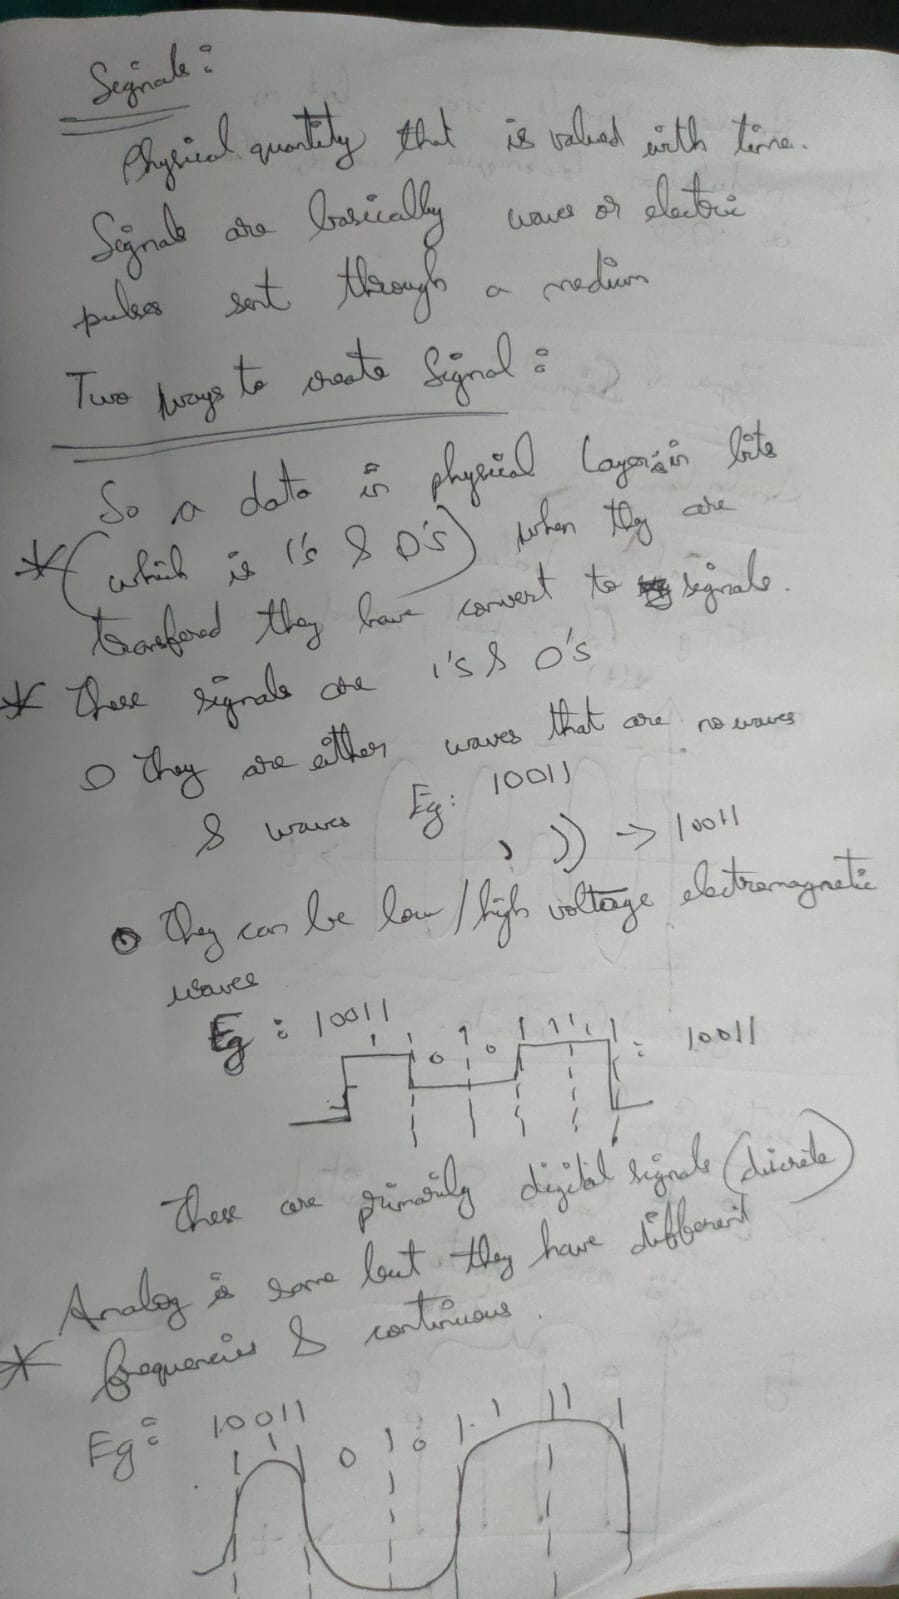 Signals:
Physical quantity that is valued with time.
Signals are basically waves or electric
pulses sent through a medium
Two ways to create Signal:
So a data in physical layer is in bits
* (which is 1's & 0's) when they are
transfered they have convert to signals.
* These signals are 1's & 0's
○ They are either waves that are no waves
& waves Eg: 10011
) )) → 10011
○ They can be low/high voltage electromagnetic
waves
Eg: 10011 1 0 0 1 1 : 10011
These are primarily digital signals (discrete)
Analog is same but they have different
* frequencies & continuous.
Eg: 10011
1 0 0 1 1